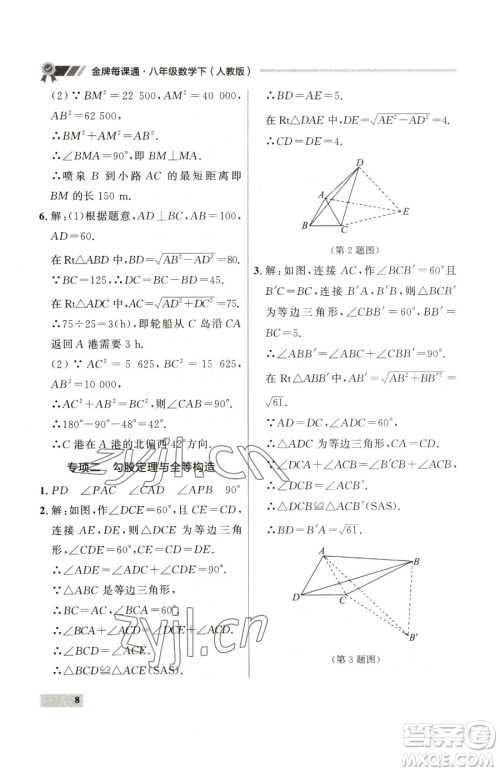 金牌每课通·八年级数学下(人教版)
(2)∵BM²=22 500,AM²=40 000,
AB²=62 500,
∴BM²+AM²=AB².
∴∠BMA=90°,即 BM⊥AC.
∴喷泉 B 到小路 AC 的最短距离即
BM 的长 150 m.
6. 解:(1)根据题意,AD⊥BC,AB=100,
AD=60.
在 Rt△ABD 中,BD=√(AB²-AD²)=80.
∵BC=125,∴DC=BC-BD=45.
在 Rt△ADC 中,AC=√(AD²+DC²)=75.
∴75÷25=3(h),即轮船从 C 岛沿 CA
返回 A 港需要 3 h.
(2)∵AC²=5 625,BC²=15 625,AB²=
10 000,
∴AC²+AB²=BC².∴∠BAC=90°.
∴180°-90°-48°=42°.
∴C 港在 A 港的北偏西 42°方向.
专项二 勾股定理与全等构造
1. PD ∠PAC ∠CAD ∠APB 90°
2. 解:如图,以 DC 为边作等边三角形 CDE,
连接 AE,DE,则△DCE 为等边三角形.
∴∠CDE=60°,∠DCE=60°.
∴∠ADE=∠ADC+∠CDE=90°.
∵△ABC 是等边三角形,
∴BC=AC,∠BCA=60°.
∴∠BCA+∠ACD=∠DCE+∠ACD.
∴∠BCD=∠ACE.
∴△BCD≌△ACE(SAS).
∴BD=AE=5.
在 Rt△DAE 中,DE=√(AE²-AD²)=4.
∴CD=DE=4.
D
A
E
B
C
(第 2 题图)
3. 解:如图,连接 AC,作∠BCB'=60°且
B'C=BC,连接 AB',BB',
则△BCB'为等边三角形,∠CBB'=60°.
∴∠ABB'=∠ABC+∠CBB'=90°.
在 Rt△ABB' 中,AB'=√(AB²+BB'²)=
√61.
∵AD=DC,∠ADC=60°,
∴△ADC 为等边三角形,∠ACD=60°.
∴∠BCD=∠B'CA.
∴△BCD≌△B'CA(SAS).
∴BD=B'A=√61.
A
B
D
C
B'
(第 3 题图)
8
zyjl.cn